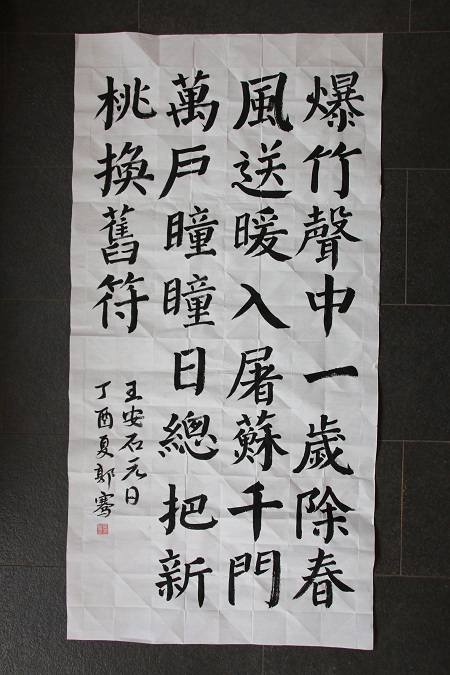 爆竹聲中一歲除春
風送暖入屠蘇千門
萬戶瞳瞳日總把新
桃換舊符
王安石元日
丁酉夏郭骞